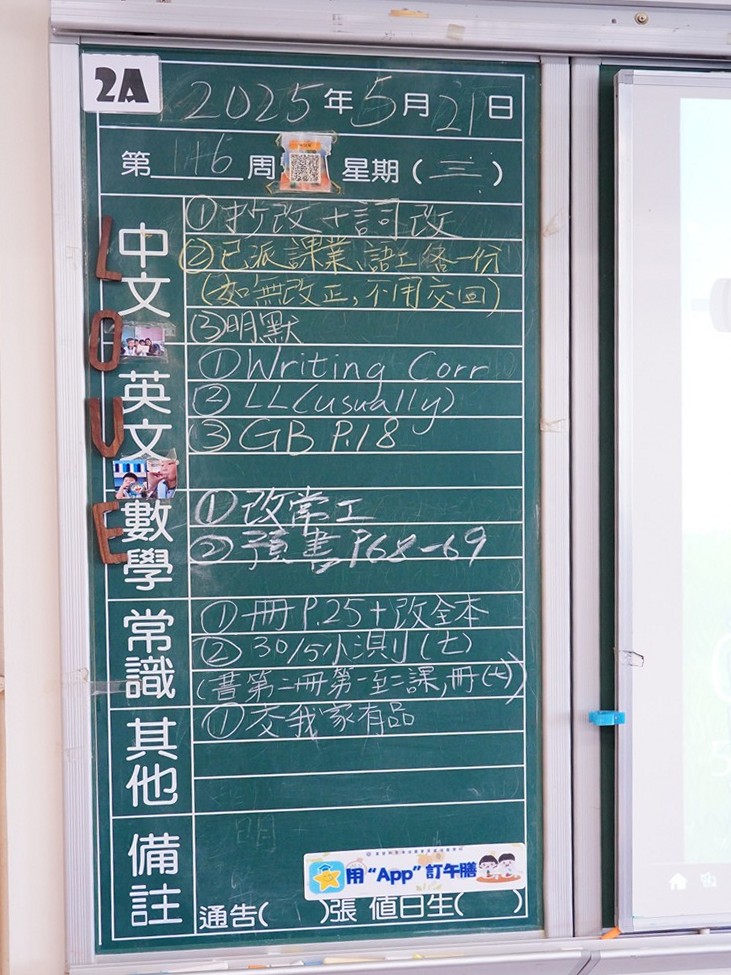 2A
2025年5月21日
第 周 星期(三)
LOVE
中文
①抄改+詞改
②已派課業、語工各一份
(如無改正,不用交回)
③明默
英文
①Writing Corr
②LL(usually)
③GB P.18
數學
①改常工
②預書P68-69
常識
①冊P.25+改全本
②30/5小測(七)
(書第二冊第一至二課,冊(七))
其他
①交我家有品
備註
用“App”訂午膳
通告( )張 值日生( )